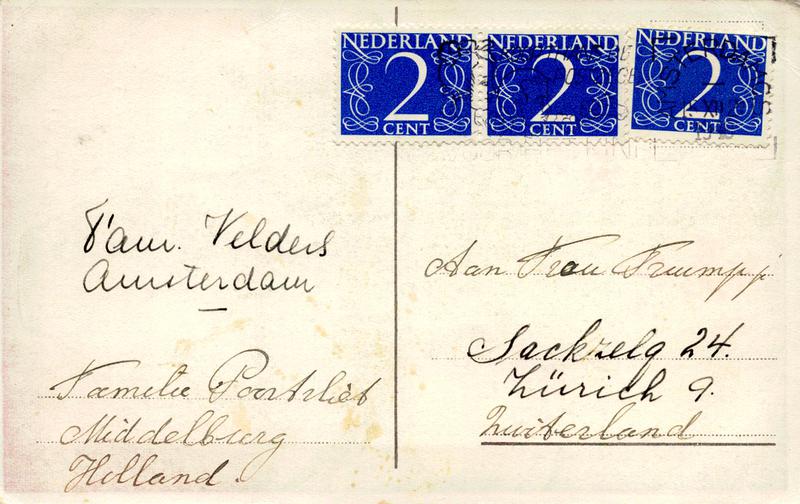 NEDERLAND
2
CENT
NEDERLAND
2
CENT
NEDERLAND
2
CENT
Fam. Velders
Amsterdam
Familie Poortvliet
Middelburg
Holland.
Aan Frau Truumpy
Sackzelg 24.
Zürich 9.
Zwiterland